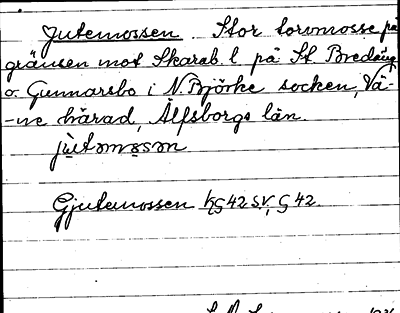 Jutemossen Stor torvmosse på
gränsen mot Skarab. l på St. Bredäng
o. Gunnarsbo i N. Björke socken, Vä-
-ne härad, Älfsborgs län.
jutəmosən
Gjutemossen hς 42 SV, ς 42.